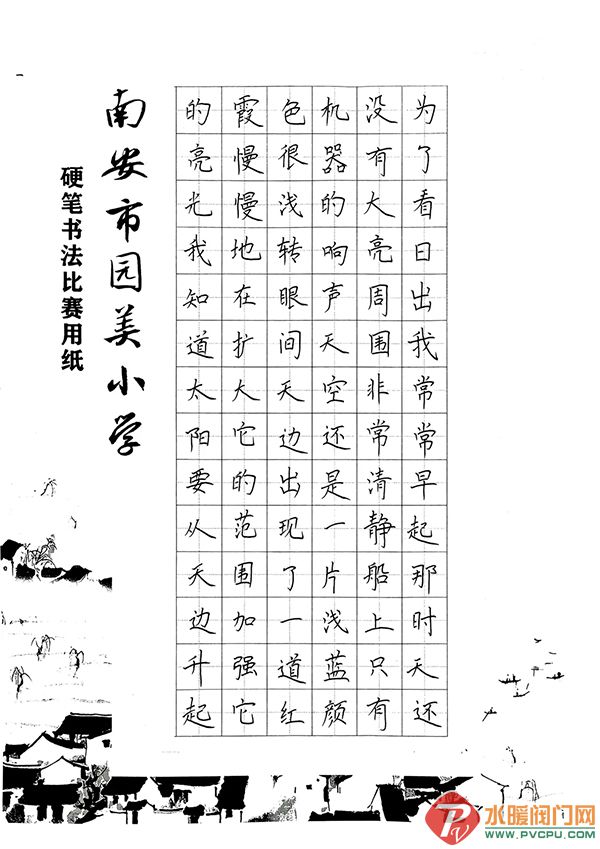 为了看日出我常常早起那时天还
没有大亮周围非常清静船上只有
机器的响声天空还是一片浅蓝颜
色很浅转眼间天边出现了一道红
霞慢慢地在扩大它的范围加强它
的亮光我知道太阳要从天边升起
南安市园美小学
硬笔书法比赛用纸
水暖阀门网
WWW.PVCPU.COM